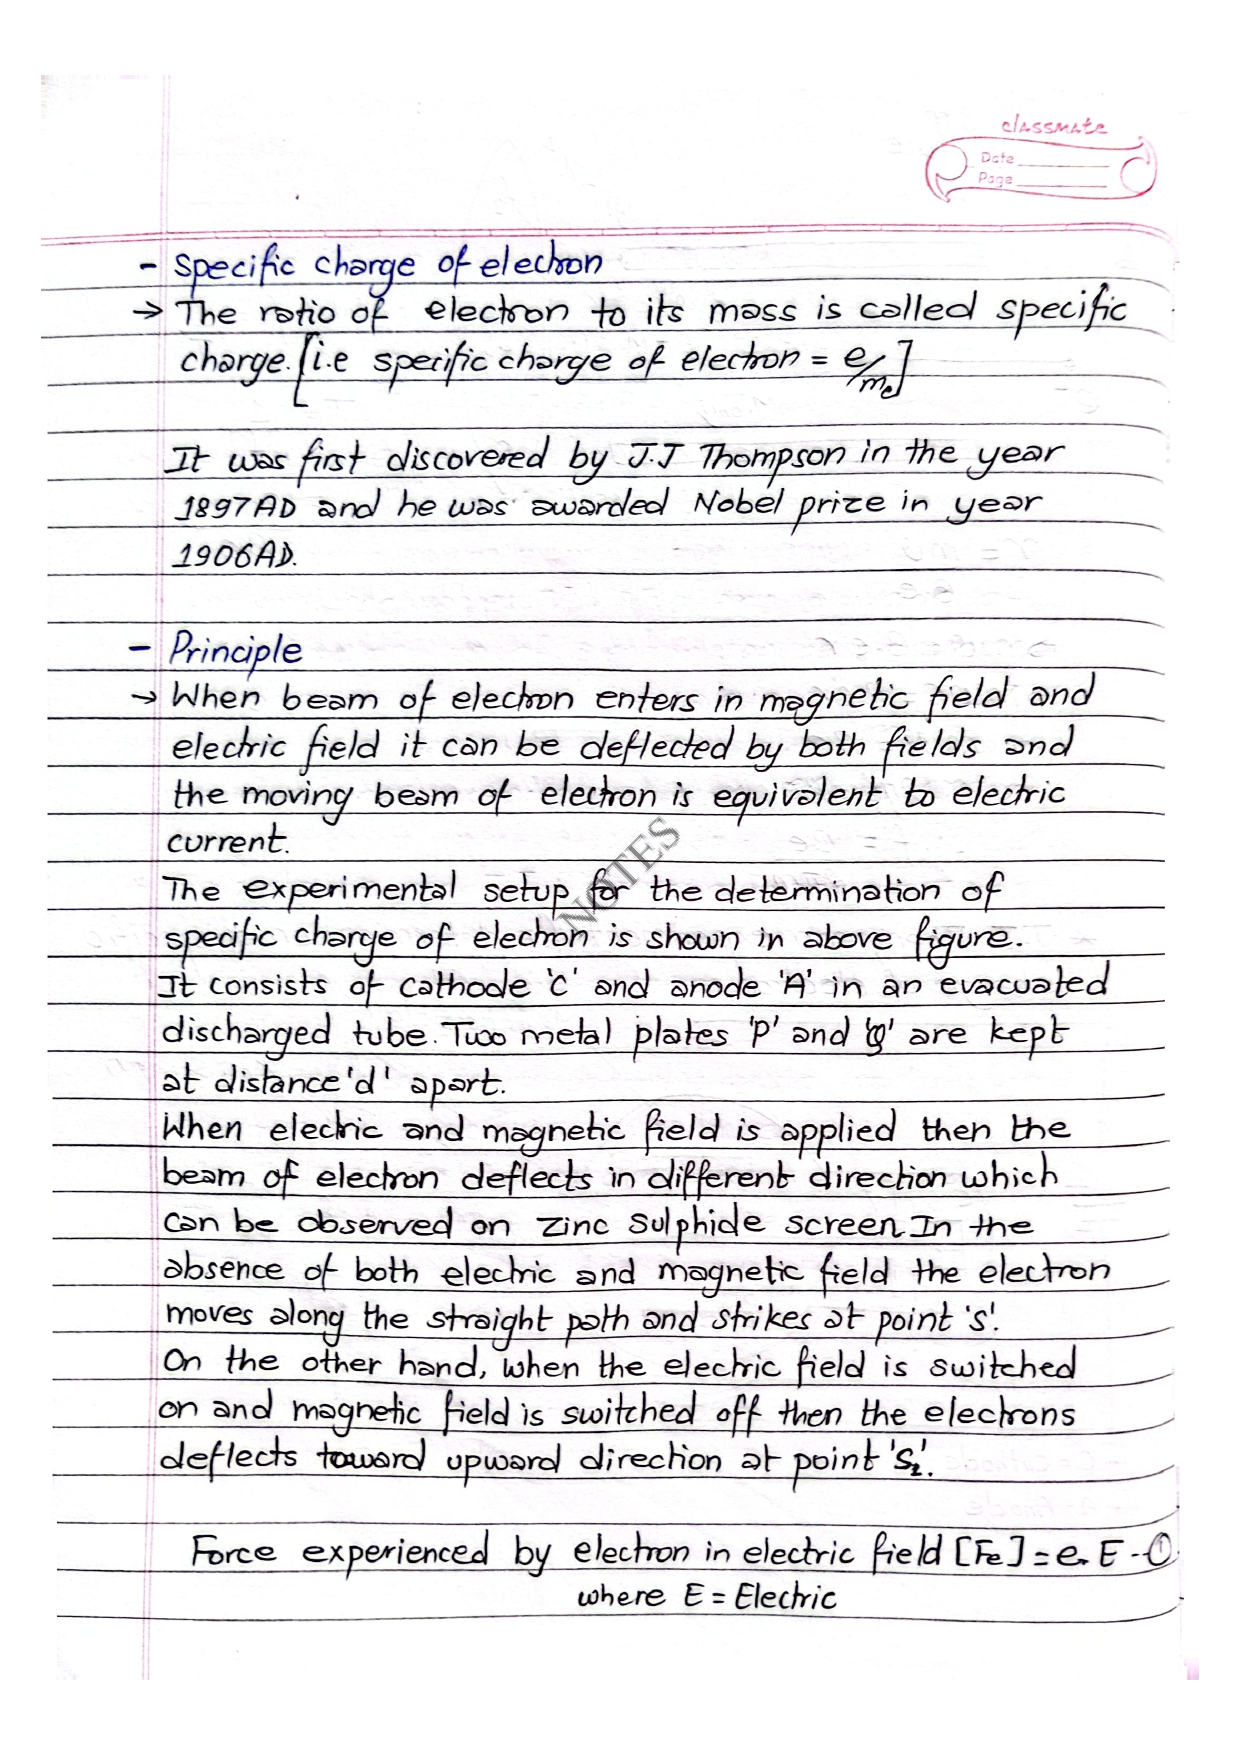 classmate
Date
Page
- Specific charge of electron
→ The ratio of electron to its mass is called specific
charge. [i.e specific charge of electron = e/me]
It was first discovered by J.J Thompson in the year
1897AD and he was awarded Nobel prize in year
1906AD.
- Principle
→ When beam of electron enters in magnetic field and
electric field it can be deflected by both fields and
the moving beam of electron is equivalent to electric
current.
NOTES
The experimental setup for the determination of
specific charge of electron is shown in above figure.
It consists of cathode 'C' and anode 'A' in an evacuated
discharged tube. Two metal plates 'P' and 'Q' are kept
at distance 'd' apart.
When electric and magnetic field is applied then the
beam of electron deflects in different direction which
can be observed on zinc sulphide screen. In the
absence of both electric and magnetic field the electron
moves along the straight path and strikes at point 'S'.
On the other hand, when the electric field is switched
on and magnetic field is switched off then the electrons
deflects toward upward direction at point 'S₂'.
Force experienced by electron in electric field [Fe] = e. E - ①
where E = Electric